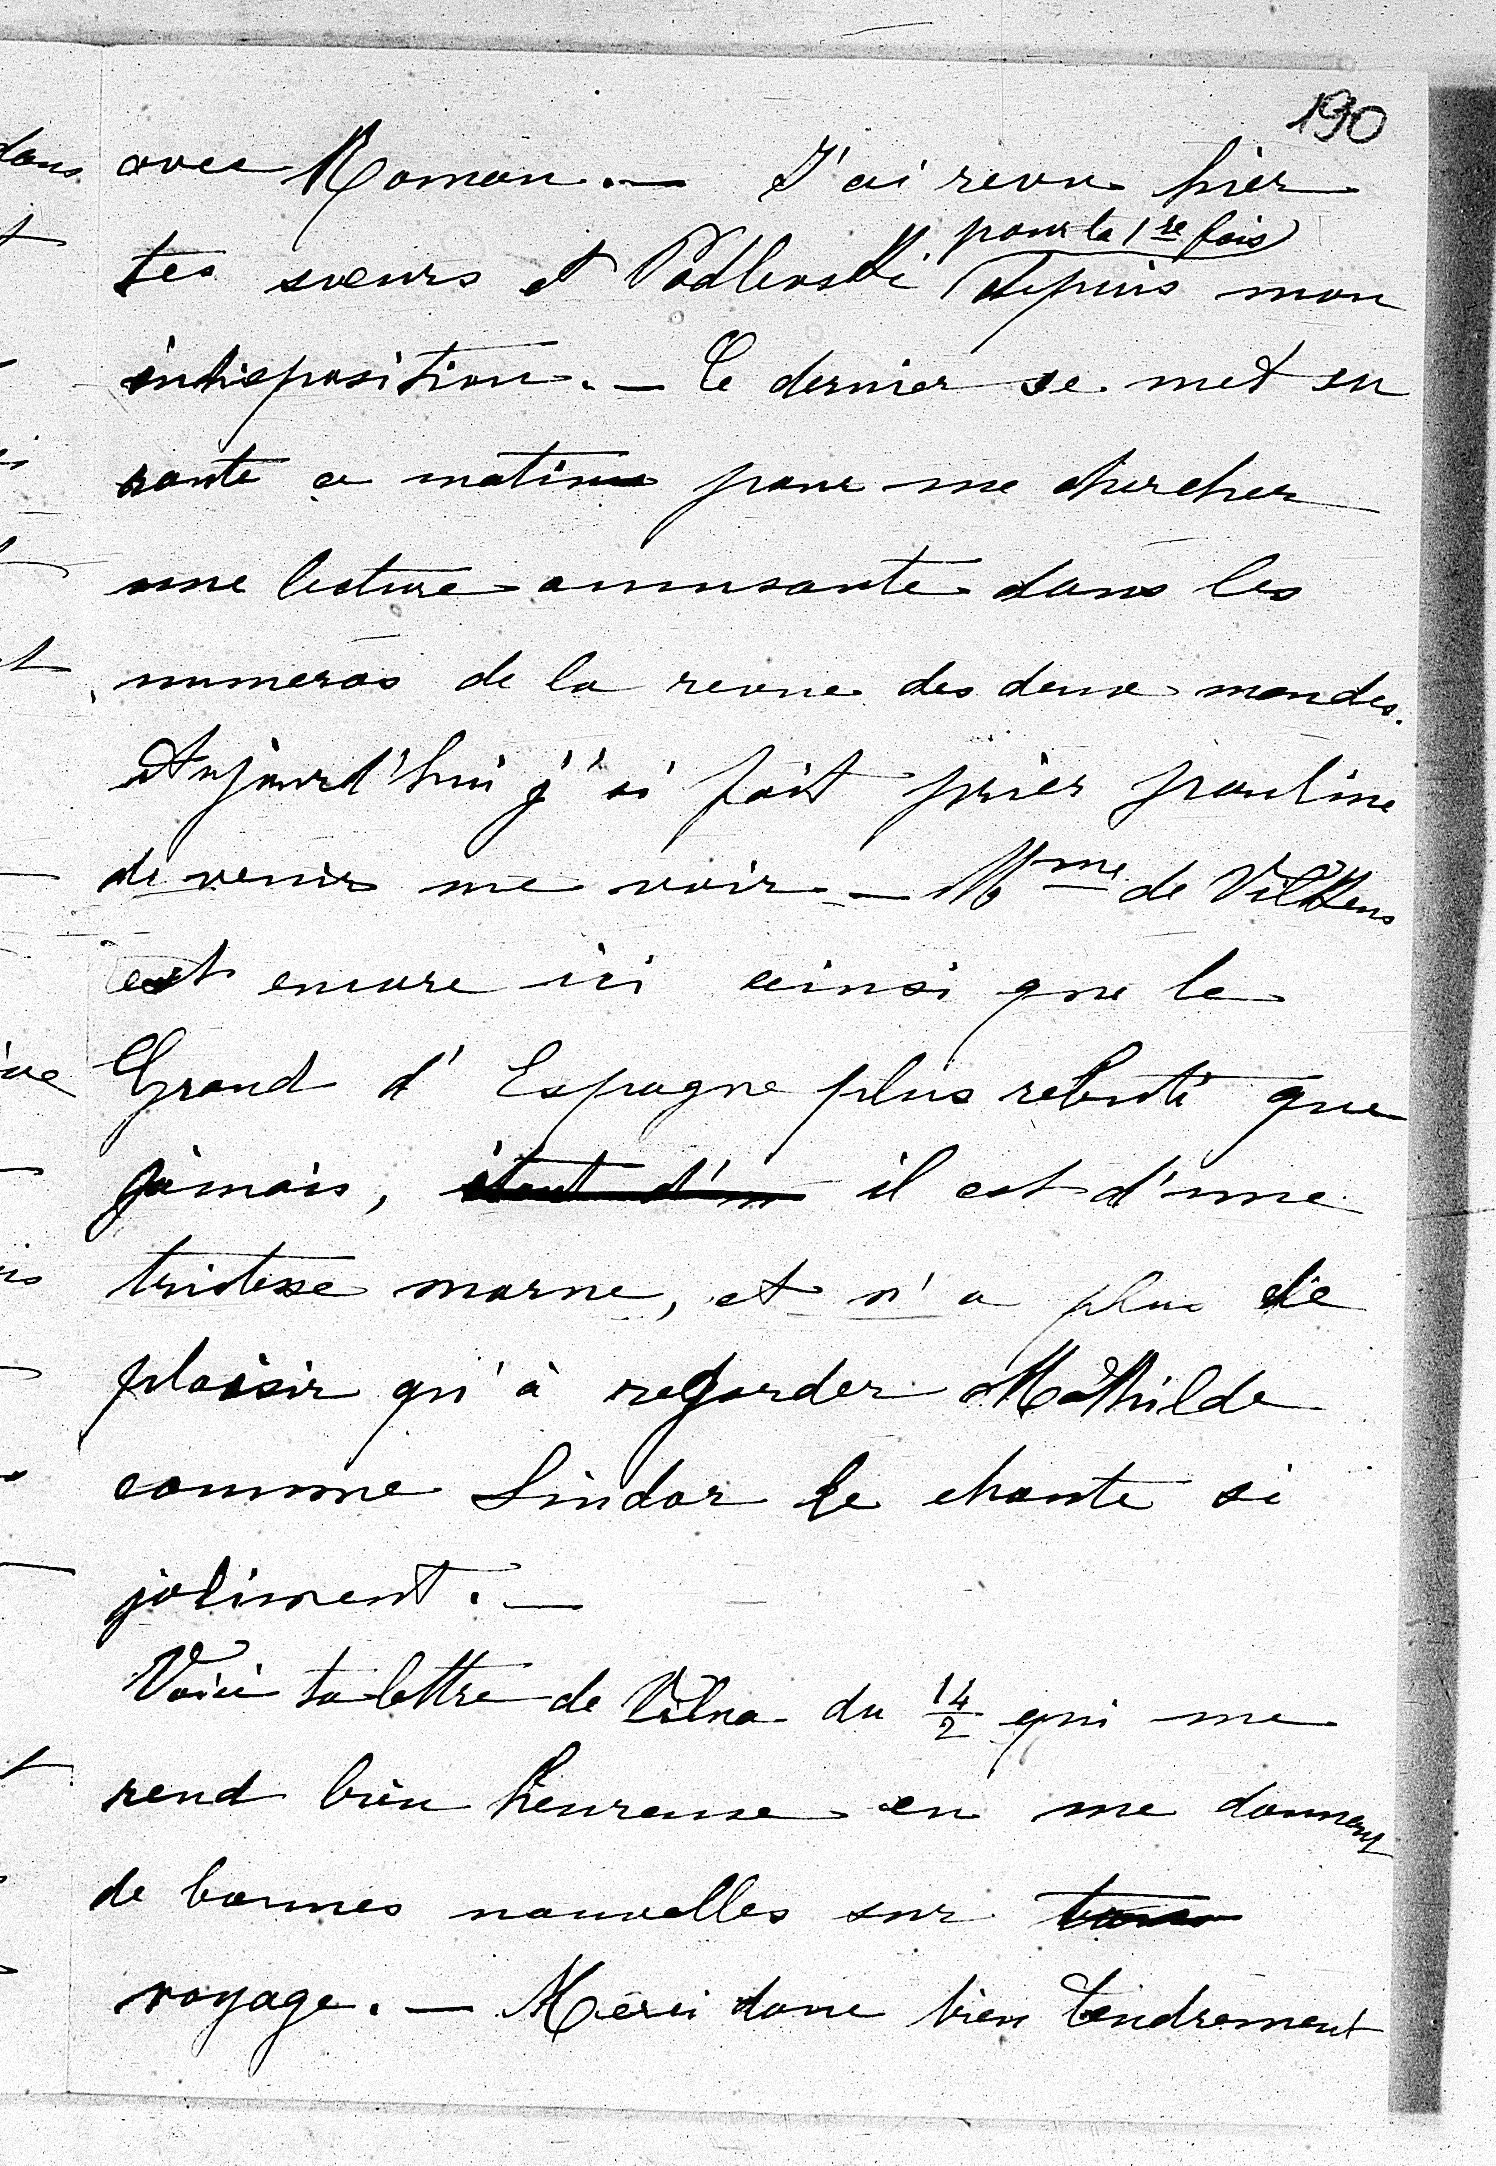 190
avec Roman. — J'ai revu hier
pour la 1re fois
tes sœurs et Podlevski depuis mon
indisposition. — Ce dernier se met en
route ce matin pour me chercher
une lecture amusante dans les
numeros de la revue des deux mondes.
Aujourd'hui j'ai fait prier pauline
de venir me voir. — Mme de Vilkens
est encore ici ainsi que le
Grand d'Espagne plus rebuté que
jamais, étant d'un il est d'une
tristesse morne, et n'a plus de
plaisir qu'à regarder Mathilde
comme Lindor le chante si
joliment. —
Voici ta lettre de Vilna du 14/2 qui me
rend bien heureuse en me donnant
de bonnes nouvelles sur
voyage. — Merci donc bien tendrement